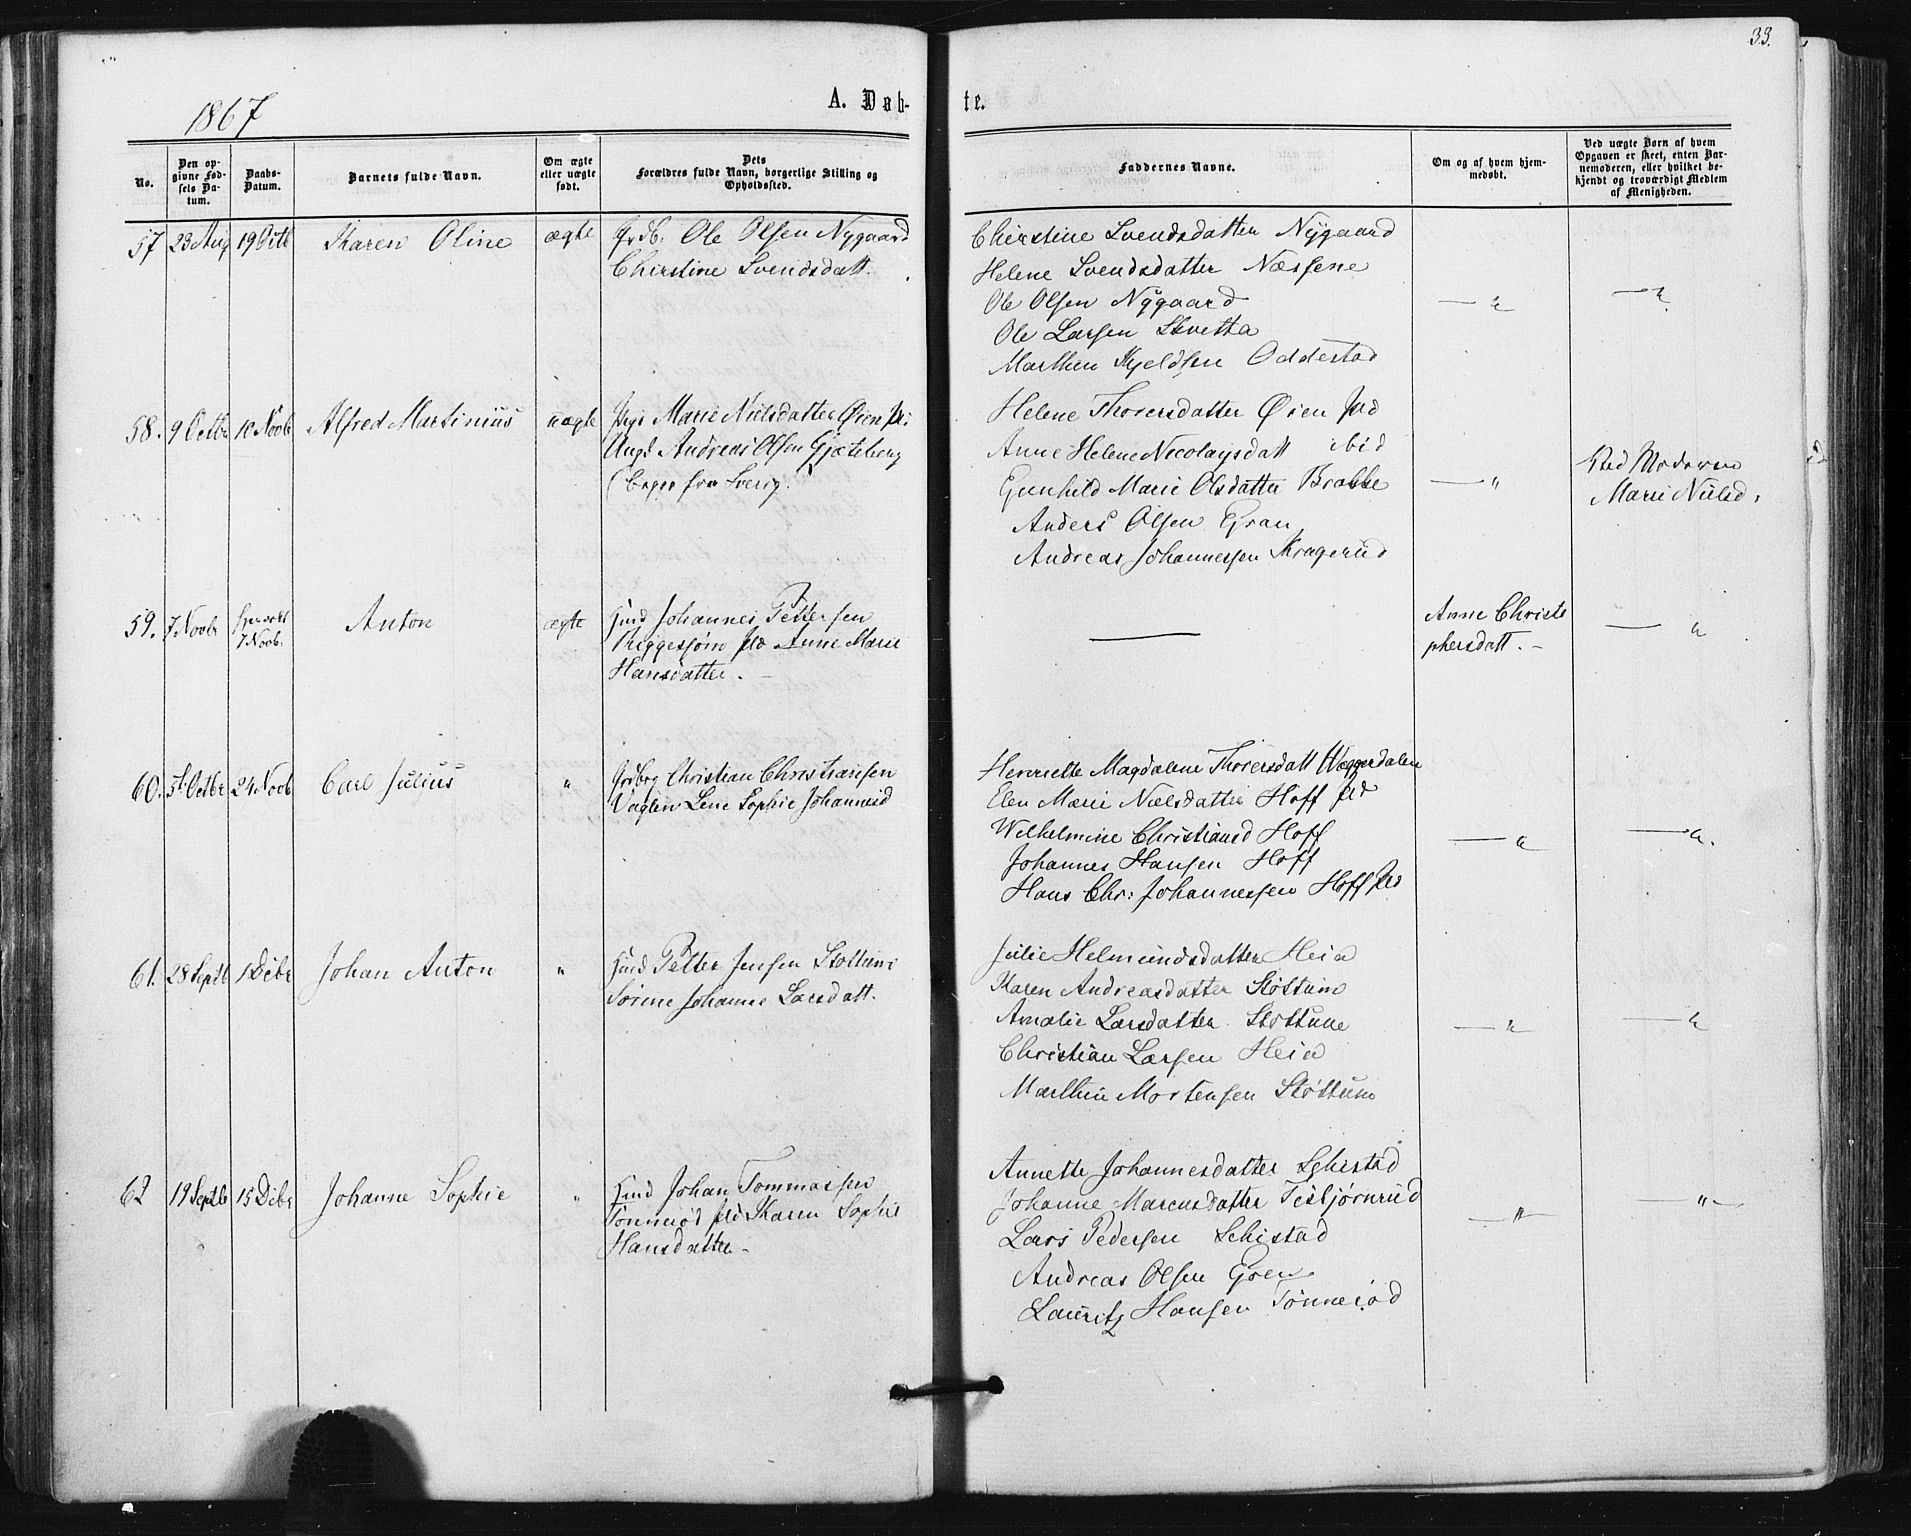 33.
1867
A. Døb-
te.
No.
Den op-
givne Fød-
sels Da-
tum.
Daabs-
Datum.
Barnets fulde Navn.
Om ægte
eller uægte
født.
Dets
Forældres fulde Navn, borgerlige Stilling og
Opholdssted.
Faddernes Navne.
Om og af hvem hjem-
medøbt.
Ved uægte Børn af hvem
Opgaven er skeet, enten Bar-
nemoderen, eller hvilket be-
kjendt og troværdigt Medlem
af Menigheden.
57 23 Aug 19 Octb Karen Oline ægte Grdb. Ole Olsen Nygaard
Chirstine Svendsdatt.
Chirstine Svendsdatter Nygaard
Helene Svendsdatter Næssene
Ole Olsen Nygaard
Ole Larsen
Marthin Kjeldsen Oddestad
58. 9 Octbr 10 Novb Alfred Martinius uægte Marie Nielsdatter Øien
Ungk Andreas Olsen
fra Sverig.
Helene Thorersdatter Øien
Anne Helene Nicolaysdatt ibid
Gunhild Marie Olsdatter Brække
Anders Olsen Gran
Andreas Johannessen Kragerud
Moderen
Marie Nielsd.
59. 7 Novbr
7 Novb.
Anton ægte Huusd Johannes Pettersen
Anne Marie
Hansdatter.
Anne Christo
phersdatt.
60. 5t Octbr 24 Novb Carl Julius " Christian Christiansen
Vaglen Lene Sophie Johannesd
Henriette Magdalene Thorersdatt Wæggerdalen
Elen Marie Nielsdatter Hoff
Wilhelmine Christiansd Hoff
Johannes Hansen Hoff
Hans Chr: Johannessen Hoff
61. 28 Septb 1 Dcbr Johan Anton " Huusd Petter Jensen Støttum
Sørine Johanne Larsdatt.
Julie Helmundsdatter Heia
Karen Andreasdatter Støttum
Amalie Larsdatter Støttum
Christian Larsen Heia
Marthin Mortensen Støttum
62 19 Septb 15 Dcbr Johanne Sophie " Huusd Johan Tommassen
Tønnerød Karen Sophie
Hansdatter
Annette Johannesdatter Schistad
Johanne Marcusdatter Tesbjørnrud
Lars Pedersen Schistad
Andreas Olsen Gren
Lauritz Hansen Tønnerød